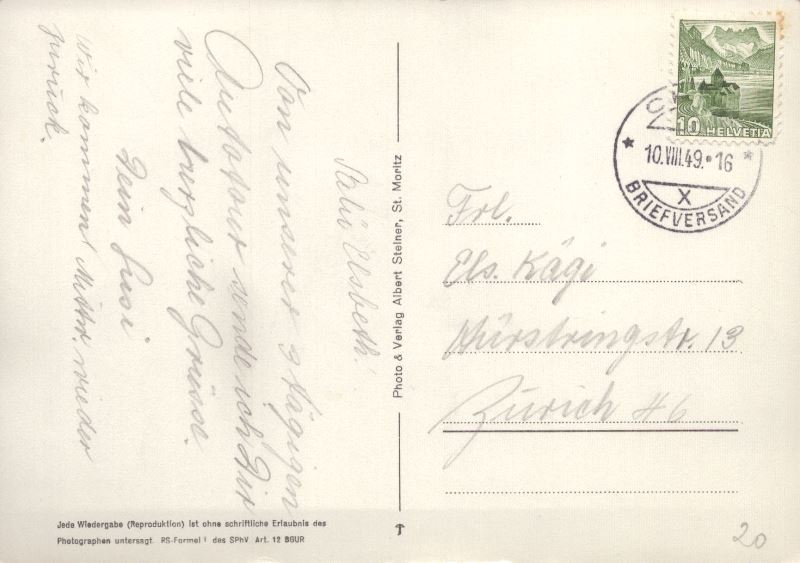 Salü Elsbeth!
Von unserer 3 tägigen
Autotour sende ich Dir
viele herzliche Grüsse.
Dein Susi
Wir kommen Mittw. wieder
zurück.
Photo & Verlag Albert Steiner, St. Moritz
10 HELVETIA
10.VIII.49.-16
X
BRIEFVERSAND
Frl.
Els. Kägi
Zürich 46
Jede Wiedergabe (Reproduktion) ist ohne schriftliche Erlaubnis des
Photographen untersagt. RS-Formel 1 des SPhV Art. 12 BGUR
20